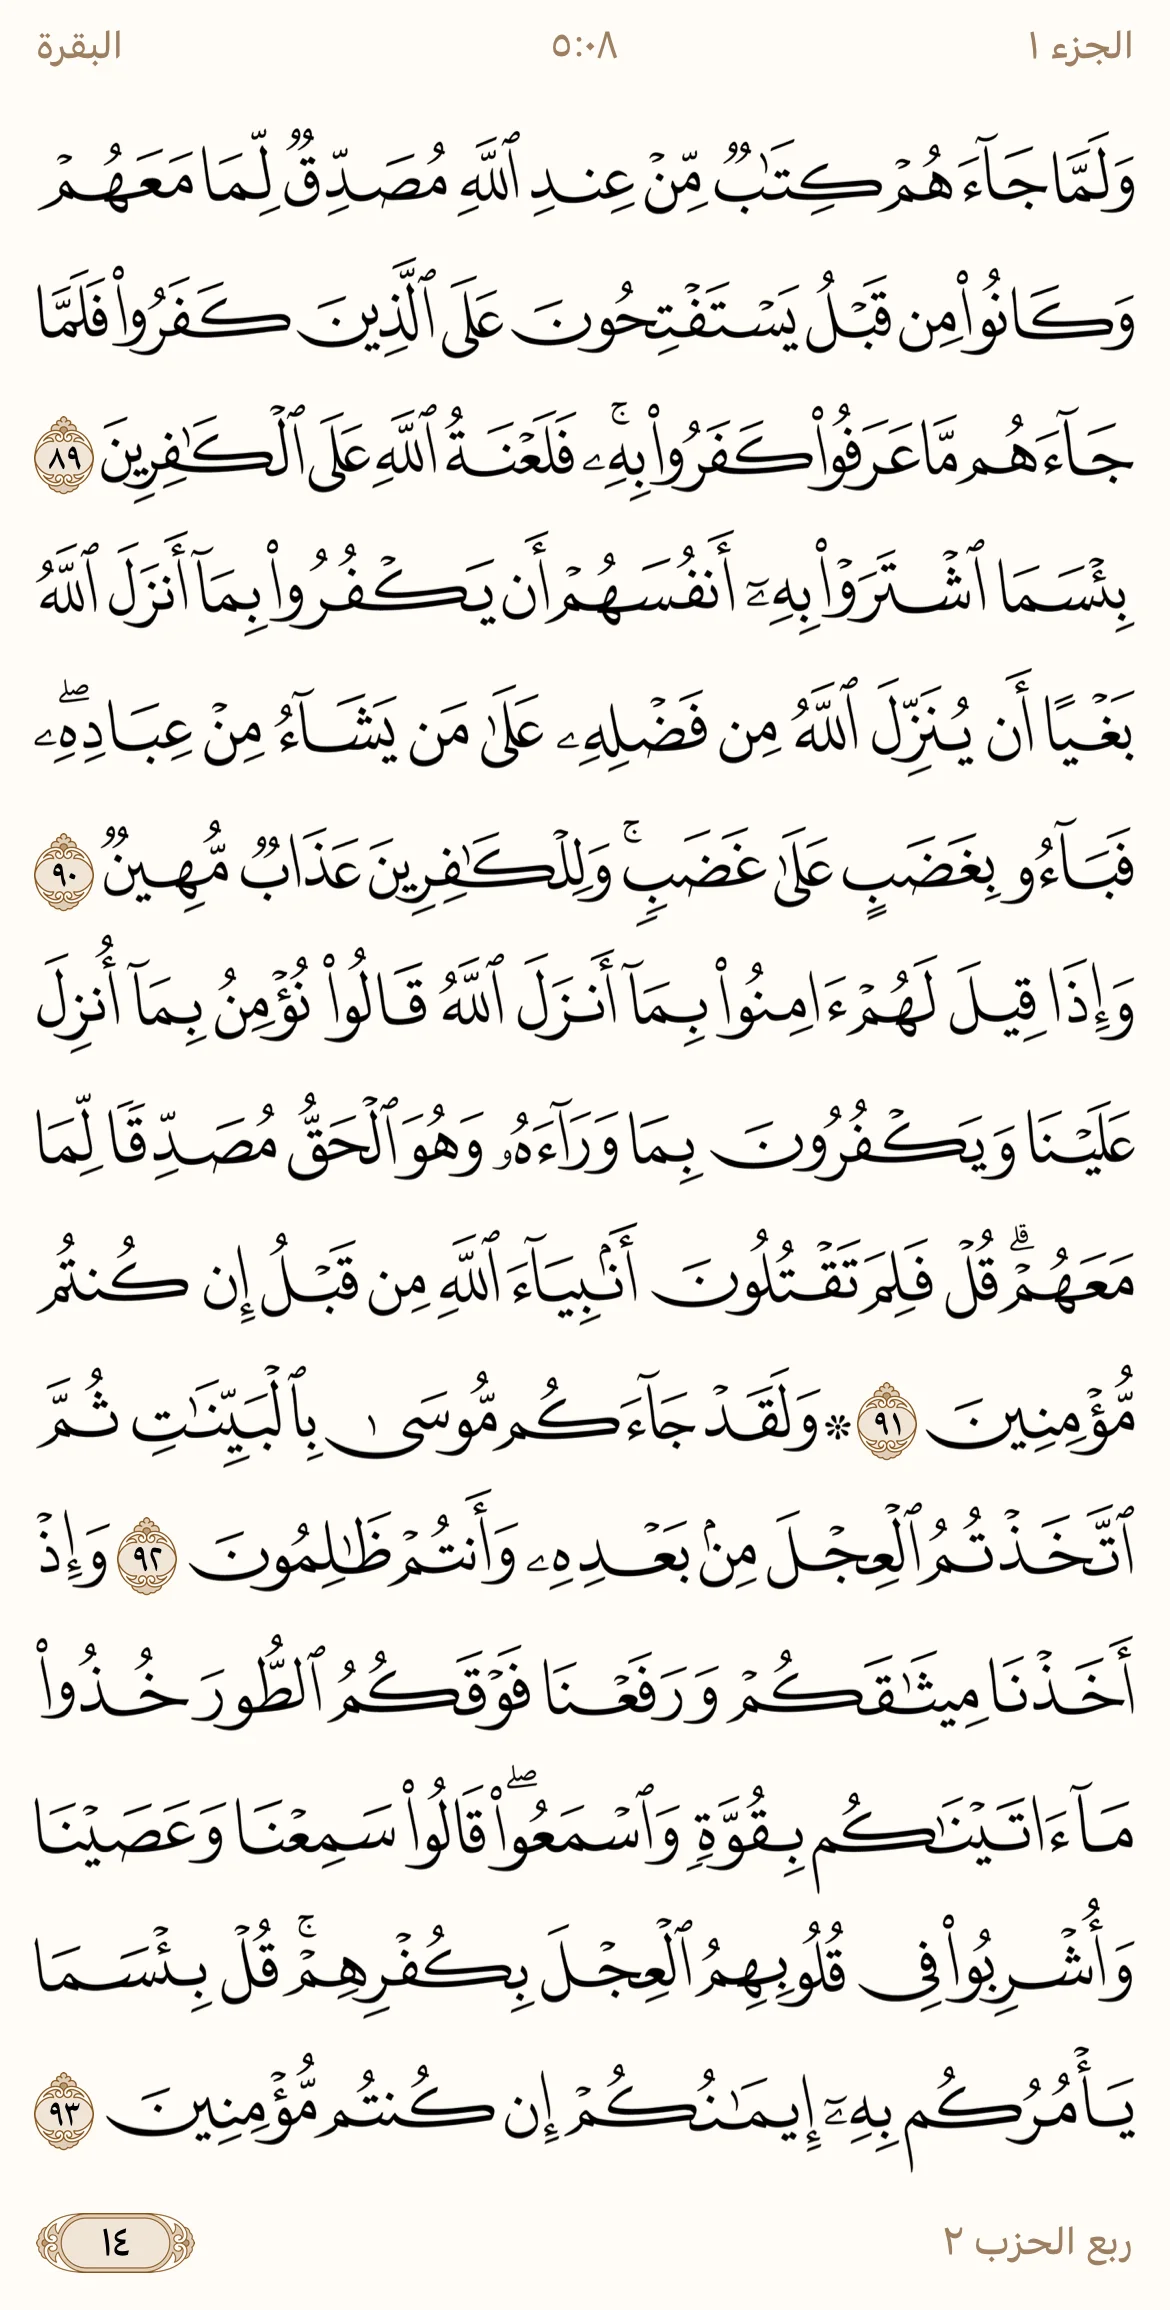 الجزء ١ ٥:٠٨ البقرة
وَلَمَّا جَآءَهُمۡ كِتَٰبٞ مِّنۡ عِندِ ٱللَّهِ مُصَدِّقٞ لِّمَا مَعَهُمۡ
وَكَانُواْ مِن قَبۡلُ يَسۡتَفۡتِحُونَ عَلَى ٱلَّذِينَ كَفَرُواْ فَلَمَّا
جَآءَهُم مَّا عَرَفُواْ كَفَرُواْ بِهِۦۚ فَلَعۡنَةُ ٱللَّهِ عَلَى ٱلۡكَٰفِرِينَ ٨٩
بِئۡسَمَا ٱشۡتَرَوۡاْ بِهِۦٓ أَنفُسَهُمۡ أَن يَكۡفُرُواْ بِمَآ أَنزَلَ ٱللَّهُ
بَغۡيًا أَن يُنَزِّلَ ٱللَّهُ مِن فَضۡلِهِۦ عَلَىٰ مَن يَشَآءُ مِنۡ عِبَادِهِۦۖ
فَبَآءُو بِغَضَبٍ عَلَىٰ غَضَبٖۚ وَلِلۡكَٰفِرِينَ عَذَابٞ مُّهِينٞ ٩٠
وَإِذَا قِيلَ لَهُمۡ ءَامِنُواْ بِمَآ أَنزَلَ ٱللَّهُ قَالُواْ نُؤۡمِنُ بِمَآ أُنزِلَ
عَلَيۡنَا وَيَكۡفُرُونَ بِمَا وَرَآءَهُۥ وَهُوَ ٱلۡحَقُّ مُصَدِّقٗا لِّمَا
مَعَهُمۡۗ قُلۡ فَلِمَ تَقۡتُلُونَ أَنۢبِيَآءَ ٱللَّهِ مِن قَبۡلُ إِن كُنتُم
مُّؤۡمِنِينَ ٩١ ۞ وَلَقَدۡ جَآءَكُم مُّوسَىٰ بِٱلۡبَيِّنَٰتِ ثُمَّ
ٱتَّخَذۡتُمُ ٱلۡعِجۡلَ مِنۢ بَعۡدِهِۦ وَأَنتُمۡ ظَٰلِمُونَ ٩٢ وَإِذۡ
أَخَذۡنَا مِيثَٰقَكُمۡ وَرَفَعۡنَا فَوۡقَكُمُ ٱلطُّورَ خُذُواْ
مَآ ءَاتَيۡنَٰكُم بِقُوَّةٖ وَٱسۡمَعُواْۖ قَالُواْ سَمِعۡنَا وَعَصَيۡنَا
وَأُشۡرِبُواْ فِي قُلُوبِهِمُ ٱلۡعِجۡلَ بِكُفۡرِهِمۡۚ قُلۡ بِئۡسَمَا
يَأۡمُرُكُم بِهِۦٓ إِيمَٰنُكُمۡ إِن كُنتُم مُّؤۡمِنِينَ ٩٣
ربع الحزب ٢ ١٤